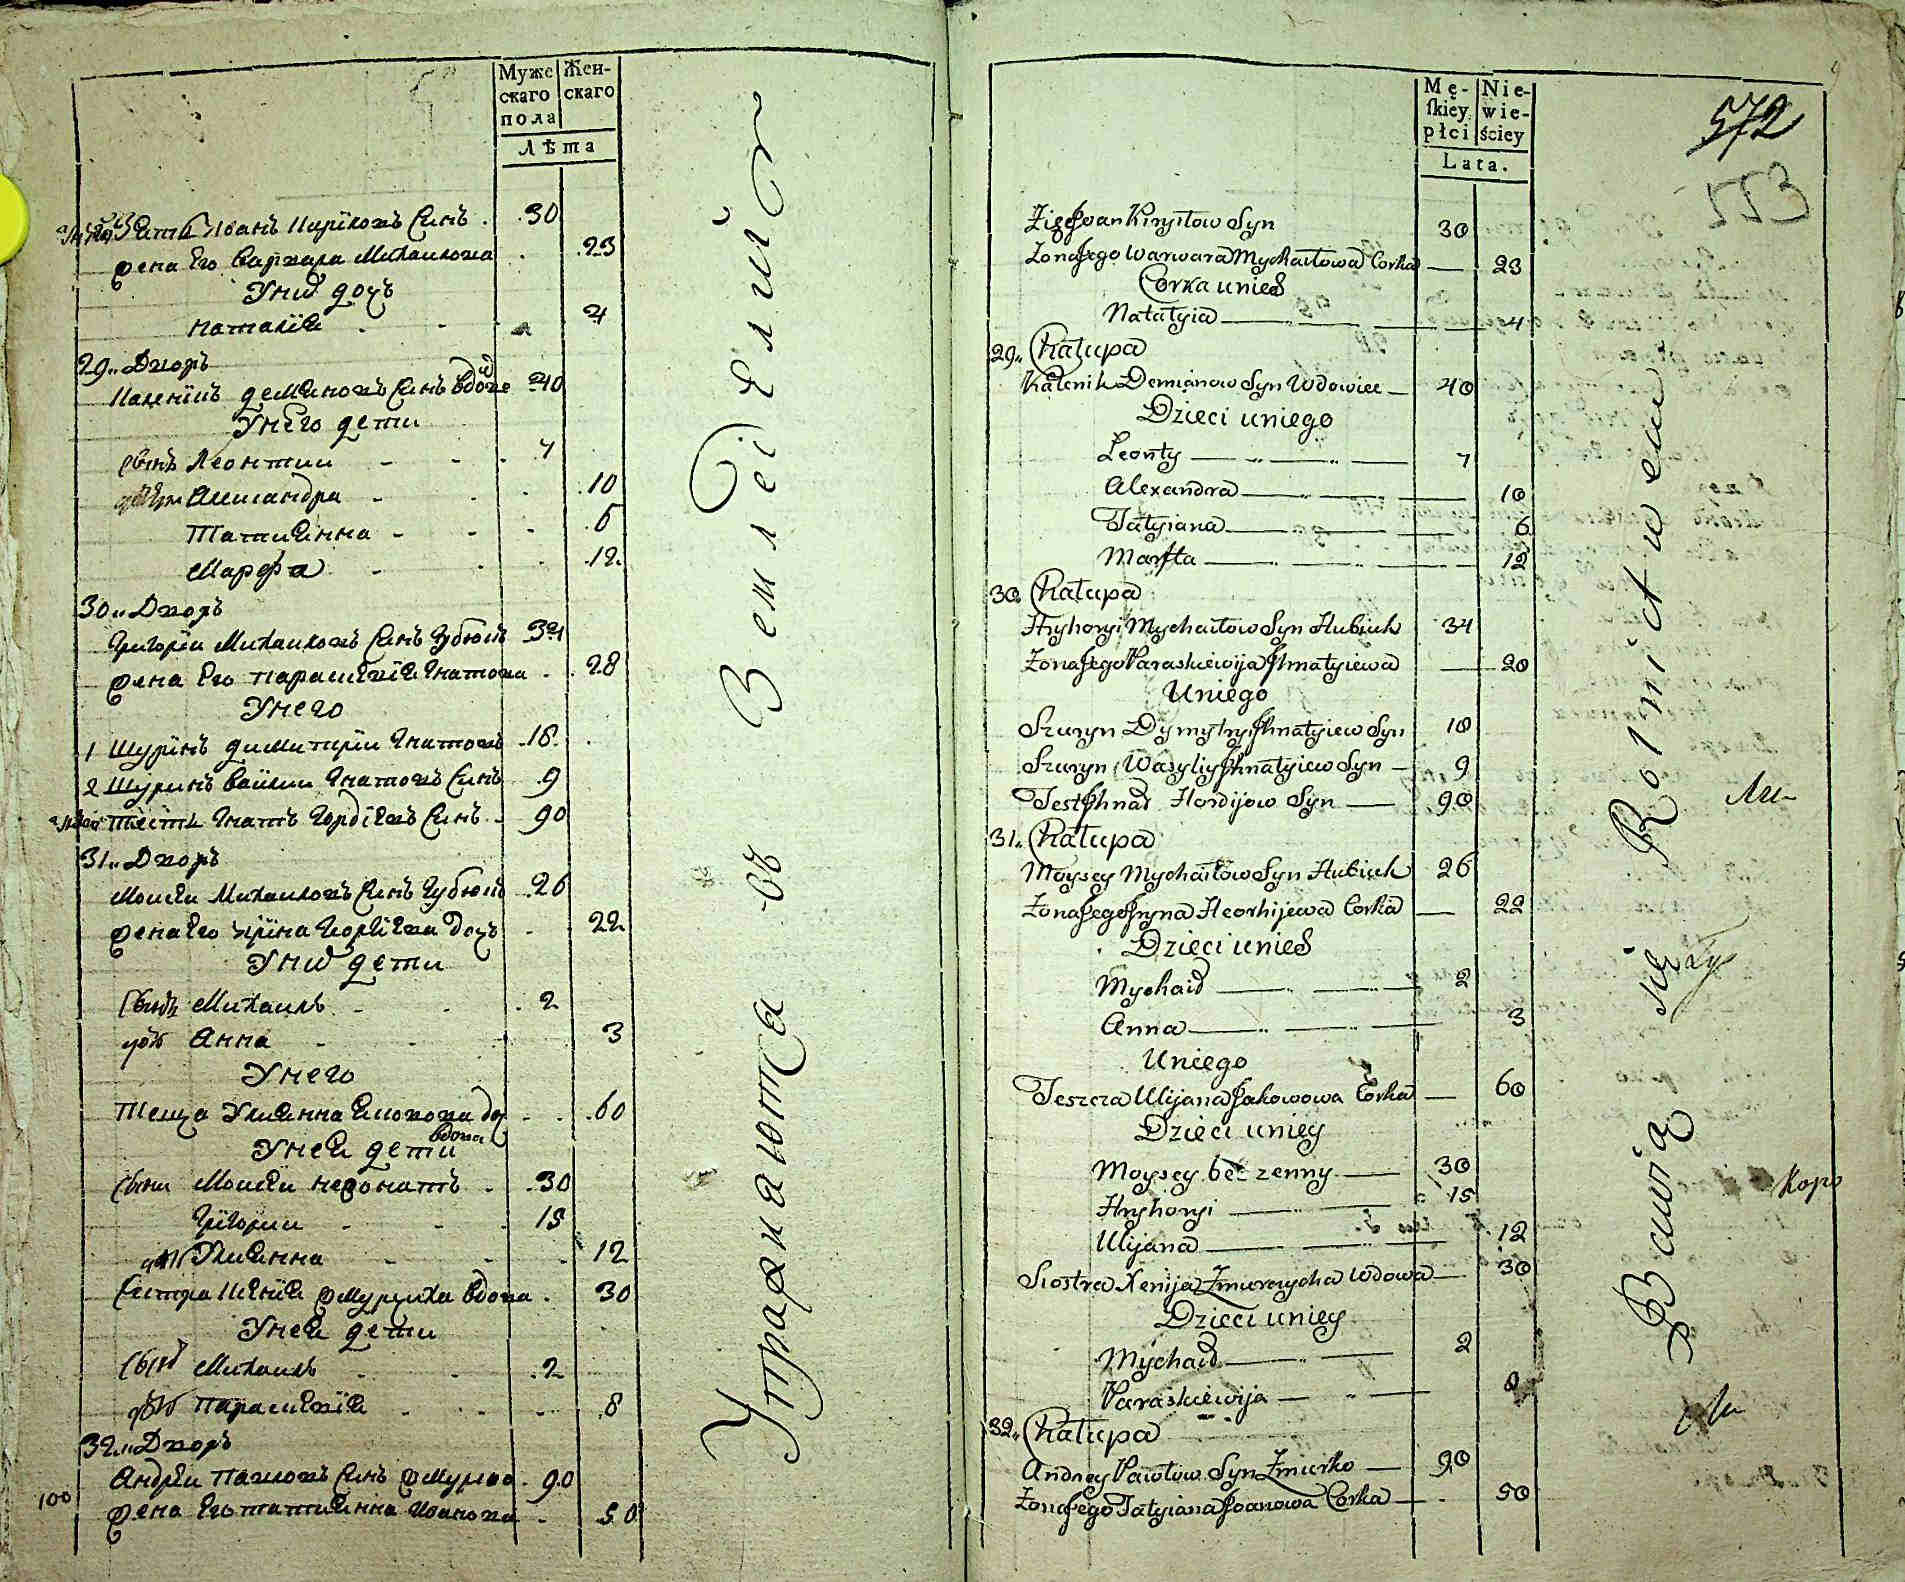 Муже
скаго
пола
Жен-
скаго
Лѣта
Зять Иванъ Кириловъ Синъ 30
жена Его Варвара Михаилова 23
У них дочь
Наталія 4
29„ Дворъ
Каленикъ Деміяновъ Синъ вдове 40
У него дети
сынъ Леонтии 7
Александра 10
Татиянна 6
Марфа 12
30„ Дворъ
Григорїи Михаиловъ Синъ Губюкъ 34
жена Его Параскевія Гнатова 28
У него
1 Шуринъ Димитрїи Гнатовъ 18
2 Шуринъ Василии Гнатовъ Синъ 9
Тесть Гнатъ Гордѣевъ Синъ 90
31„ Дворъ
Моисеи Михаиловъ Синъ Губюкъ 26
жена Его Ирїна Георгїева дочь 22
У них дети
Сынъ Михаилъ 2
Анна 3
У него
Теща Улиянна Яковова до 60
вдова
У неи дети
Сыни Моисеи нежонатъ 30
Григории 15
Улиянна 12
Сестра Ксенїя Жмурчиха вдова 30
У неи дети
Сынъ Михаилъ 2
Параскевїя 8
32„ Дворъ
Андрѣи Павловъ Синъ Жмурко 90
100
жена Его Татиянна Иванова 50
Упражняются въ Земледѣлїй
Mę-
skiey
płci
Nie-
wie-
ściey
Lata.
572
553
Zięć Jwan Kiryłow Syn 30
Zona Jego Warwara Mychaiłowa Corka 23
Corka unieh
Natalyia 4
29„ Chałupa
Kalenik Demianow Syn Wdowiec 40
Dzieci uniego
Leonty 7
Alexandra 10
Tatyiana 6
Marfta 12
30„ Chałupa
Hryhoryi Mychaiłow Syn Hubiuk 34
Zona Jego Paraskiewija Jhnatyiewa 20
Uniego
Szuryn Dymytryi Jhnatyiew Syn 18
Szuryn Wasyliy Jhnatyiew Syn 9
Test Jhnad Hordijow Syn 90
31„ Chałupa
Moysey Mychaiłow Syn Hubiuk 26
Zona Jego Jryna Heorhijewa Corka 22
Dzieci unieh
Mychaid 2
Anna 3
Uniego
Teszcza Ulijana Jakowowa Corka 60
Dzieci uniey
Moysey bezzenny 30
Hryhoryi 15
Ulijana 12
Siostra Xenija Zmurczycha Wdowa 30
Dzieci uniey
Mychaid 2
Paraskiewija 8
32„ Chałupa
Andrey Pawłow Syn Zmurko 90
Zona Jego Tatyiana Jwanowa Corka 50
Bawią się Rolnictwem